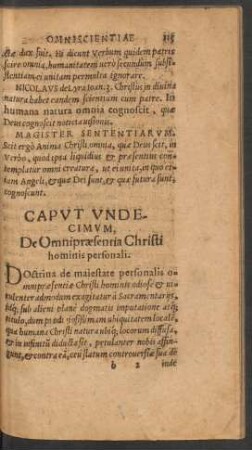 OMNISCIENTIAE
ctæ dux fuit. Hi dicunt Verbum quidem patris
scire omnia, humanitatem verò secundum
substantiam, ei unitam permulta ignorare.
NICOLAVS de Lyra Ioan. 3. Christus in divina
natura habet eandem scientiam cum patre. In
humana natura omnia cognoscit, quæ
Deus cognoscit notitia visionis.
MAGISTER SENTENTIARVM.
Scit ergò Anima Christi omnia, quæ Deus scit, in
Verbo, quod ipsa liquidius & præsentius
contemplatur omni creatura, ut
etiam Angeli, & quæ Dei sunt, & quæ futura sunt,
cognoscunt.
CAPVT VNDE-
CIMVM,
De Omnipræsentia Christi
hominis personali.
Doctrina de maiestate personalis o-
mnipræsentiæ Christi hominis odiosè &
admodum exagitatur à Sacramentarijs,
sub alieni planè dogmatis imputatione
titulo, dum
quæ humana Christi natura ubiq; locorum diffusa,
& in infinitū diducta sit, petulanter nobis
& contra eā, ceu statum controversiæ
b 2 inde